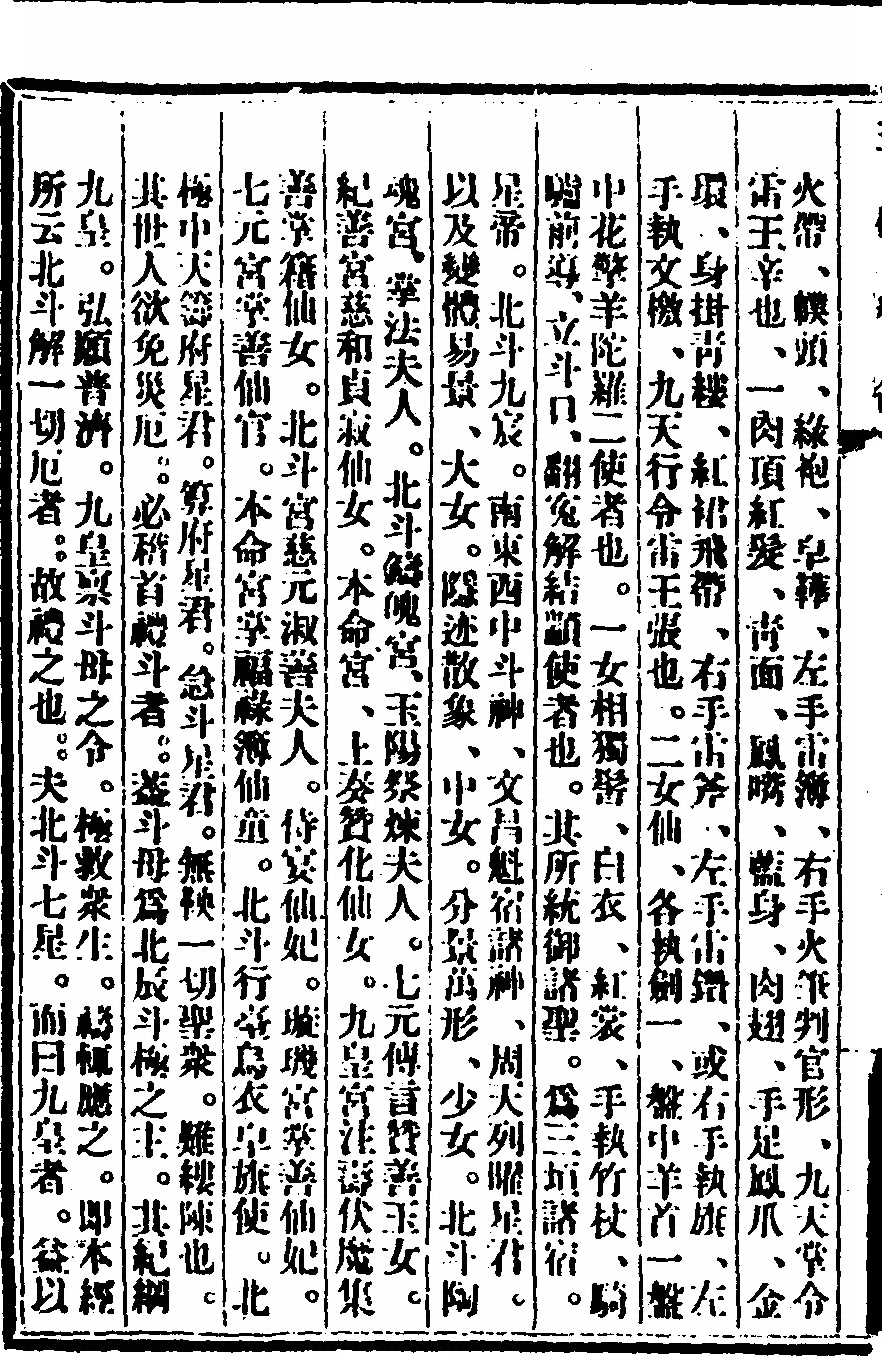 火帶、幞頭、綠袍、皂鞾、左手雷簿、右手火筆判官形、九天掌令
雷王辛也、一肉頂紅髮、青面、鳳嘴、藍身、肉翅、手足鳳爪、金
環、身掛青褸、紅裙飛帶、右手雷斧、左手雷鑽、或右手執旗、左
手執文檄、九天行令雷王張也。二女仙、各執劍一、盤中羊首一盤
中花擎羊陀羅二使者也。一女相獨髻、白衣、紅裳、手執竹杖、騎
前導、立斗口、翻冤解結顓使者也。其所統御諸聖。爲三垣諸宿。
星帝。北斗九宸。南東西中斗神、文昌魁宿諸神、周天列曜星君。
以及變體易景、大女。隱迹散象、中女。分景萬形、少女。北斗陶
魂宮、掌法夫人。北斗鱗魄宮、玉陽祭煉夫人。七元傳言贊善玉女。
紀善宮慈和貞寂仙女。本命宮、上奏贊化仙女。九皇宮注壽伏魔集
善掌籍仙女。北斗宮慈元淑善夫人。侍宴仙妃。璇璣宮掌善仙妃。
七元宮掌善仙官。本命宮掌福祿簿仙童。北斗行臺烏衣皂旂使。北
極中天壽府星君。算府星君。怠斗星君。無鞅一切聖衆。難縷陳也。
其世人欲免災厄。必稽首禮斗者。蓋斗母爲北辰斗極之主。其紀綱
九皇。弘願普濟。九皇稟斗母之令。極救衆生。禱輒應之。卽本經
所云北斗解一切厄者。故禮之也。夫北斗七星。而曰九皇者。益以